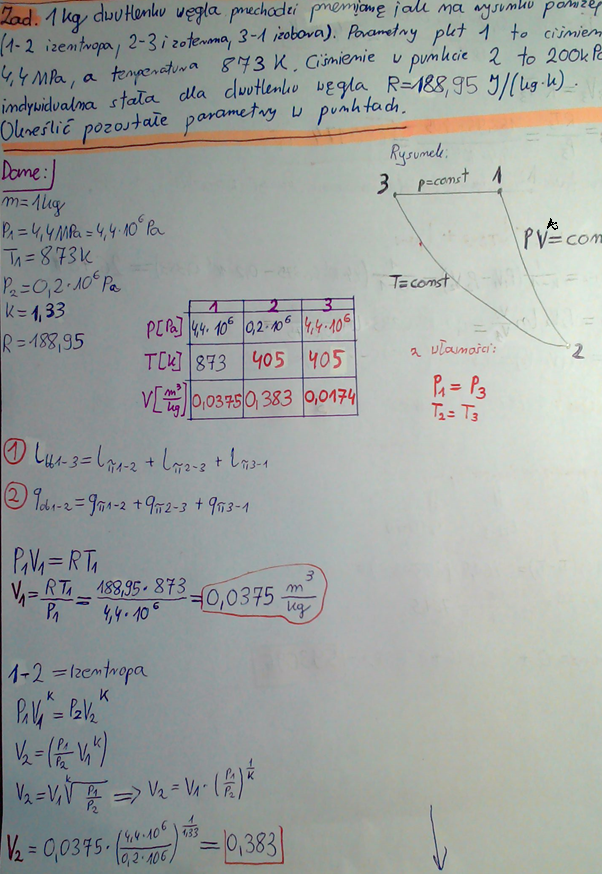 Zad. 1 kg dwutlenku węgla przechodzi przemianę jak na rysunku poniżej
(1-2 izentropa, 2-3 izoterma, 3-1 izobara). Parametry pkt 1 to ciśnienie
4,4 MPa, a temperatura 873 K. Ciśnienie w punkcie 2 to 200kPa
indywidualna stała dla dwutlenku węgla R=188,95 J/(kg·K).
Określić pozostałe parametry w punktach.
Dane:
m=1kg
P1=4,4MPa=4,4·10^6 Pa
T1=873K
P2=0,2·10^6 Pa
K=1,33
R=188,95
Rysunek:
3 p=const 1
PV=con
T=const
2
1 2 3
P[Pa] 4,4·10^6 0,2·10^6 4,4·10^6
T[K] 873 405 405
V[m³/kg] 0,0375 0,383 0,0174
z własności:
P1 = P3
T2 = T3
① Lt1-3=Lπ1-2 + Lπ2-3 + Lπ3-1
② qd1-2=qπ1-2 + qπ2-3 + qπ3-1
P1V1=RT1
V1=RT1/P1=188,95·873/4,4·10^6=0,0375 m³/kg
1-2 = Izentropa
P1V1^K=P2V2^K
V2=(P1/P2 V1^K)
V2=V1 ᴷ√(P1/P2) ⟹ V2=V1·(P1/P2)^(1/K)
V2=0,0375·(4,4·10^6/0,2·10^6)^(1/1,33)=0,383